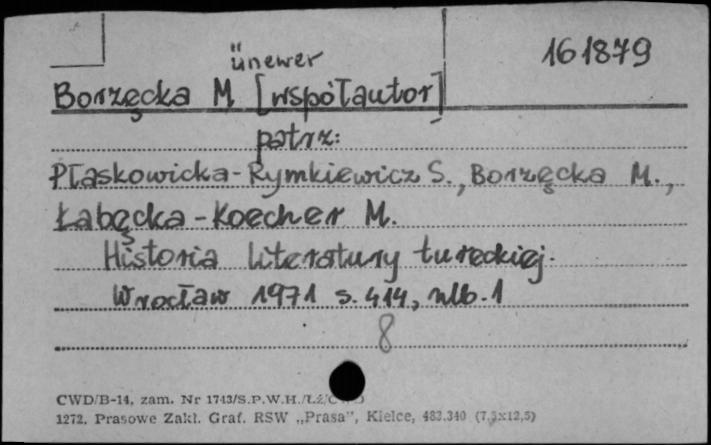 ünewer
161879
Borzęcka M [współautor]
patrz:
Płaskowicka-Rymkiewicz S., Borzęcka M.,
Łabęcka-Koecher M.
Historia literatury tureckiej.
Wrocław 1971 s. 414, nlb. 1
8
CWD/B-14, zam. Nr 1743/S.P.W.H./Łż/C
1272. Prasowe Zakł. Graf. RSW „Prasa”, Kielce, 483.340 (7,5x12,5)